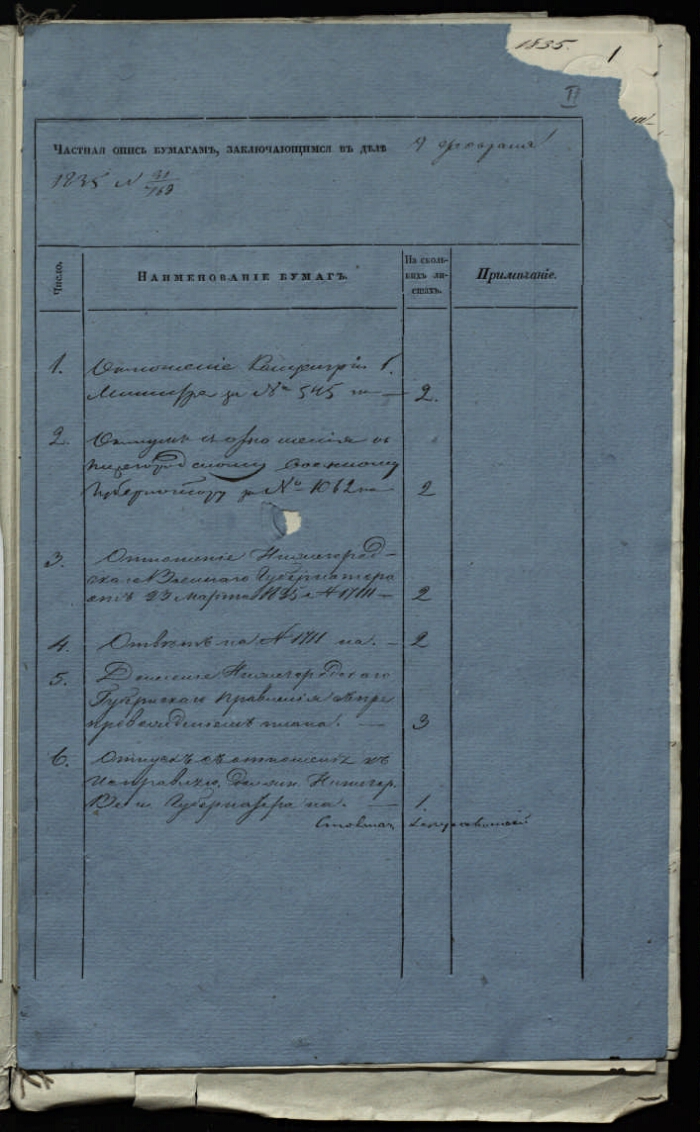 1835. 1
II
Частная опись бумагамъ, заключающимся въ дѣлѣ 9 февраля
1835 № 31/769
Число.
Наименованіе бумагъ.
На сколькихъ листахъ.
Примѣчаніе.
1. Отношеніе Канцеляріи Г.
Министра за № 545 на — 2.
2. Отпускъ съ отношенія къ
Нижегородскому Военному
Губернатору за № 1062 на 2
3. Отношеніе Нижегород-
скаго Военнаго Губернатора
отъ 23 Марта 1835 № 1711 — 2
4. Отвѣтъ на № 1711 на. — 2
5. Донесеніе Нижегородскаго
Губернскаго Правленія съ пре
провожденіемъ плана. — 3
6. Отпускъ съ отношенія къ
Исправляю. Должн. Нижегор.
Воен. Губернатора на. — 1.